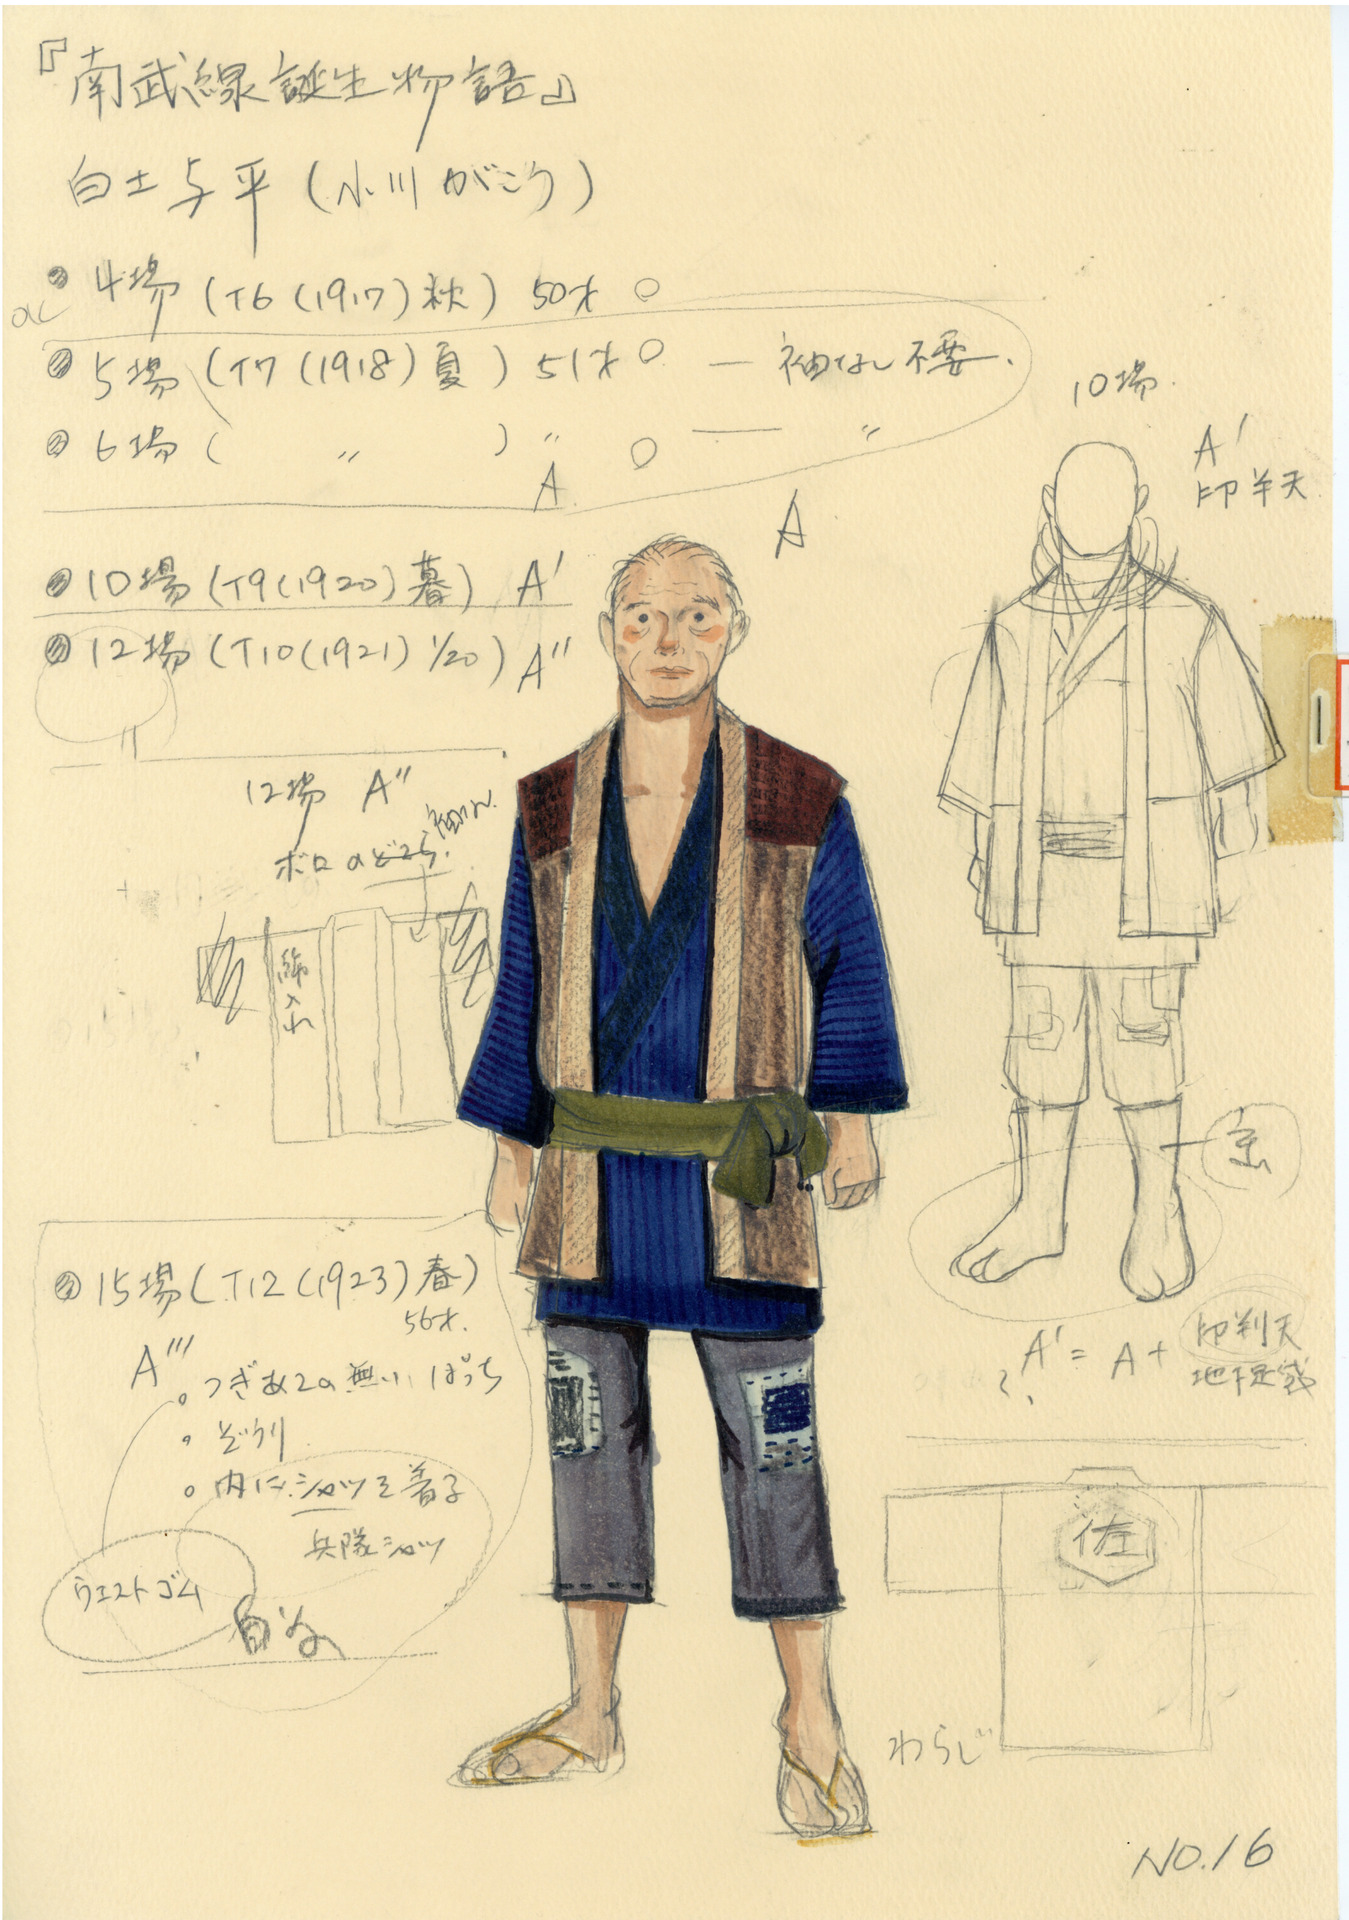 『南武線誕生物語』
白土与平(小川がこう)
4場(T6(1917)秋) 50才 ○
5場(T7(1918)夏) 51才 ○ — 袖なし不要.
6場( 〃 ) 〃 ○ — 〃
A
A
10場(T9(1920)暮) A'
12場(T10(1921)1/20) A''
10場.
A'
印半天
12場 A''
袖なし
ボロのどこら.
綿入れ
15場(T12(1923)春)
56才.
A'''
つぎあての無い ぱっち
ぞうり
内にシャツを着る
兵隊シャツ
ウエストゴム
A' = A + 印判天
地下足袋
佐
わらじ
NO.16